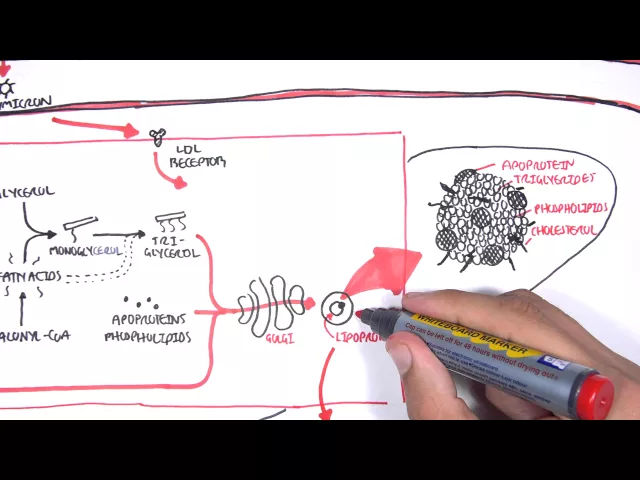 OMICRON
LDL
RECEPTOR
GLYCEROL
MONOGLYCEROL
TRI-
GLYCEROL
FATTY ACIDS
APOPROTEINS
PHOPHOLIPIDS
ALONYL-COA
GOLGI
LIPOPRO
APOPROTEIN
TRIGLYERIDES
PHOPHOLIPIDS
CHOLESTEROL
WHITEBOARD MARKER
Cap can be left off for 48 hours without drying out